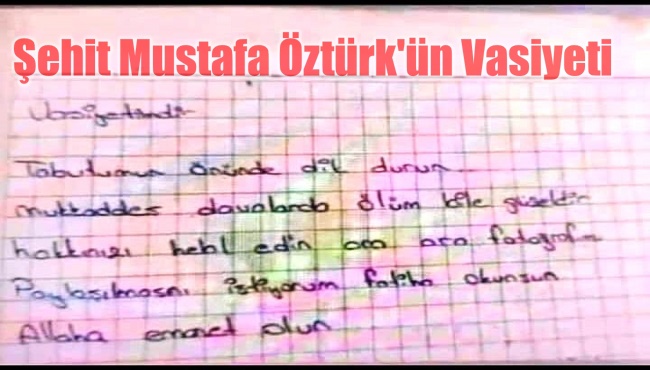 Şehit Mustafa Öztürk'ün Vasiyeti
Vasiyetimdir
Tabutumun önünde dik durun
mukaddes davalarda ölüm bile güzeldir
hakkınızı helal edin ara ara fotoğrafın
Paylaşılmasını istiyorum fatiha okunsun
Allaha emanet olun